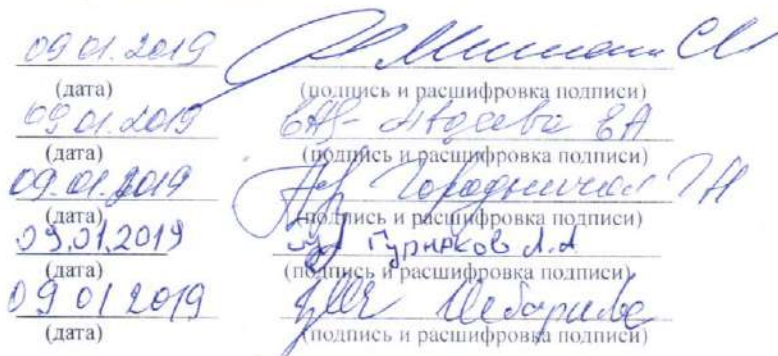 09.01.2019
(дата) (подпись и расшифровка подписи)
09.01.2019 Авдеева ЕА
(дата) (подпись и расшифровка подписи)
09.01.2019 Городничая
(дата) (подпись и расшифровка подписи)
09.01.2019 Гурняков А.А.
(дата) (подпись и расшифровка подписи)
09 01 2019
(дата) (подпись и расшифровка подписи)